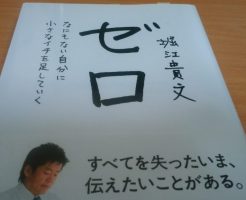 ゼロ
堀江貴文
なにもない自分に
小さなイチを足していく
すべてを失ったいま、
伝えたいことがある。